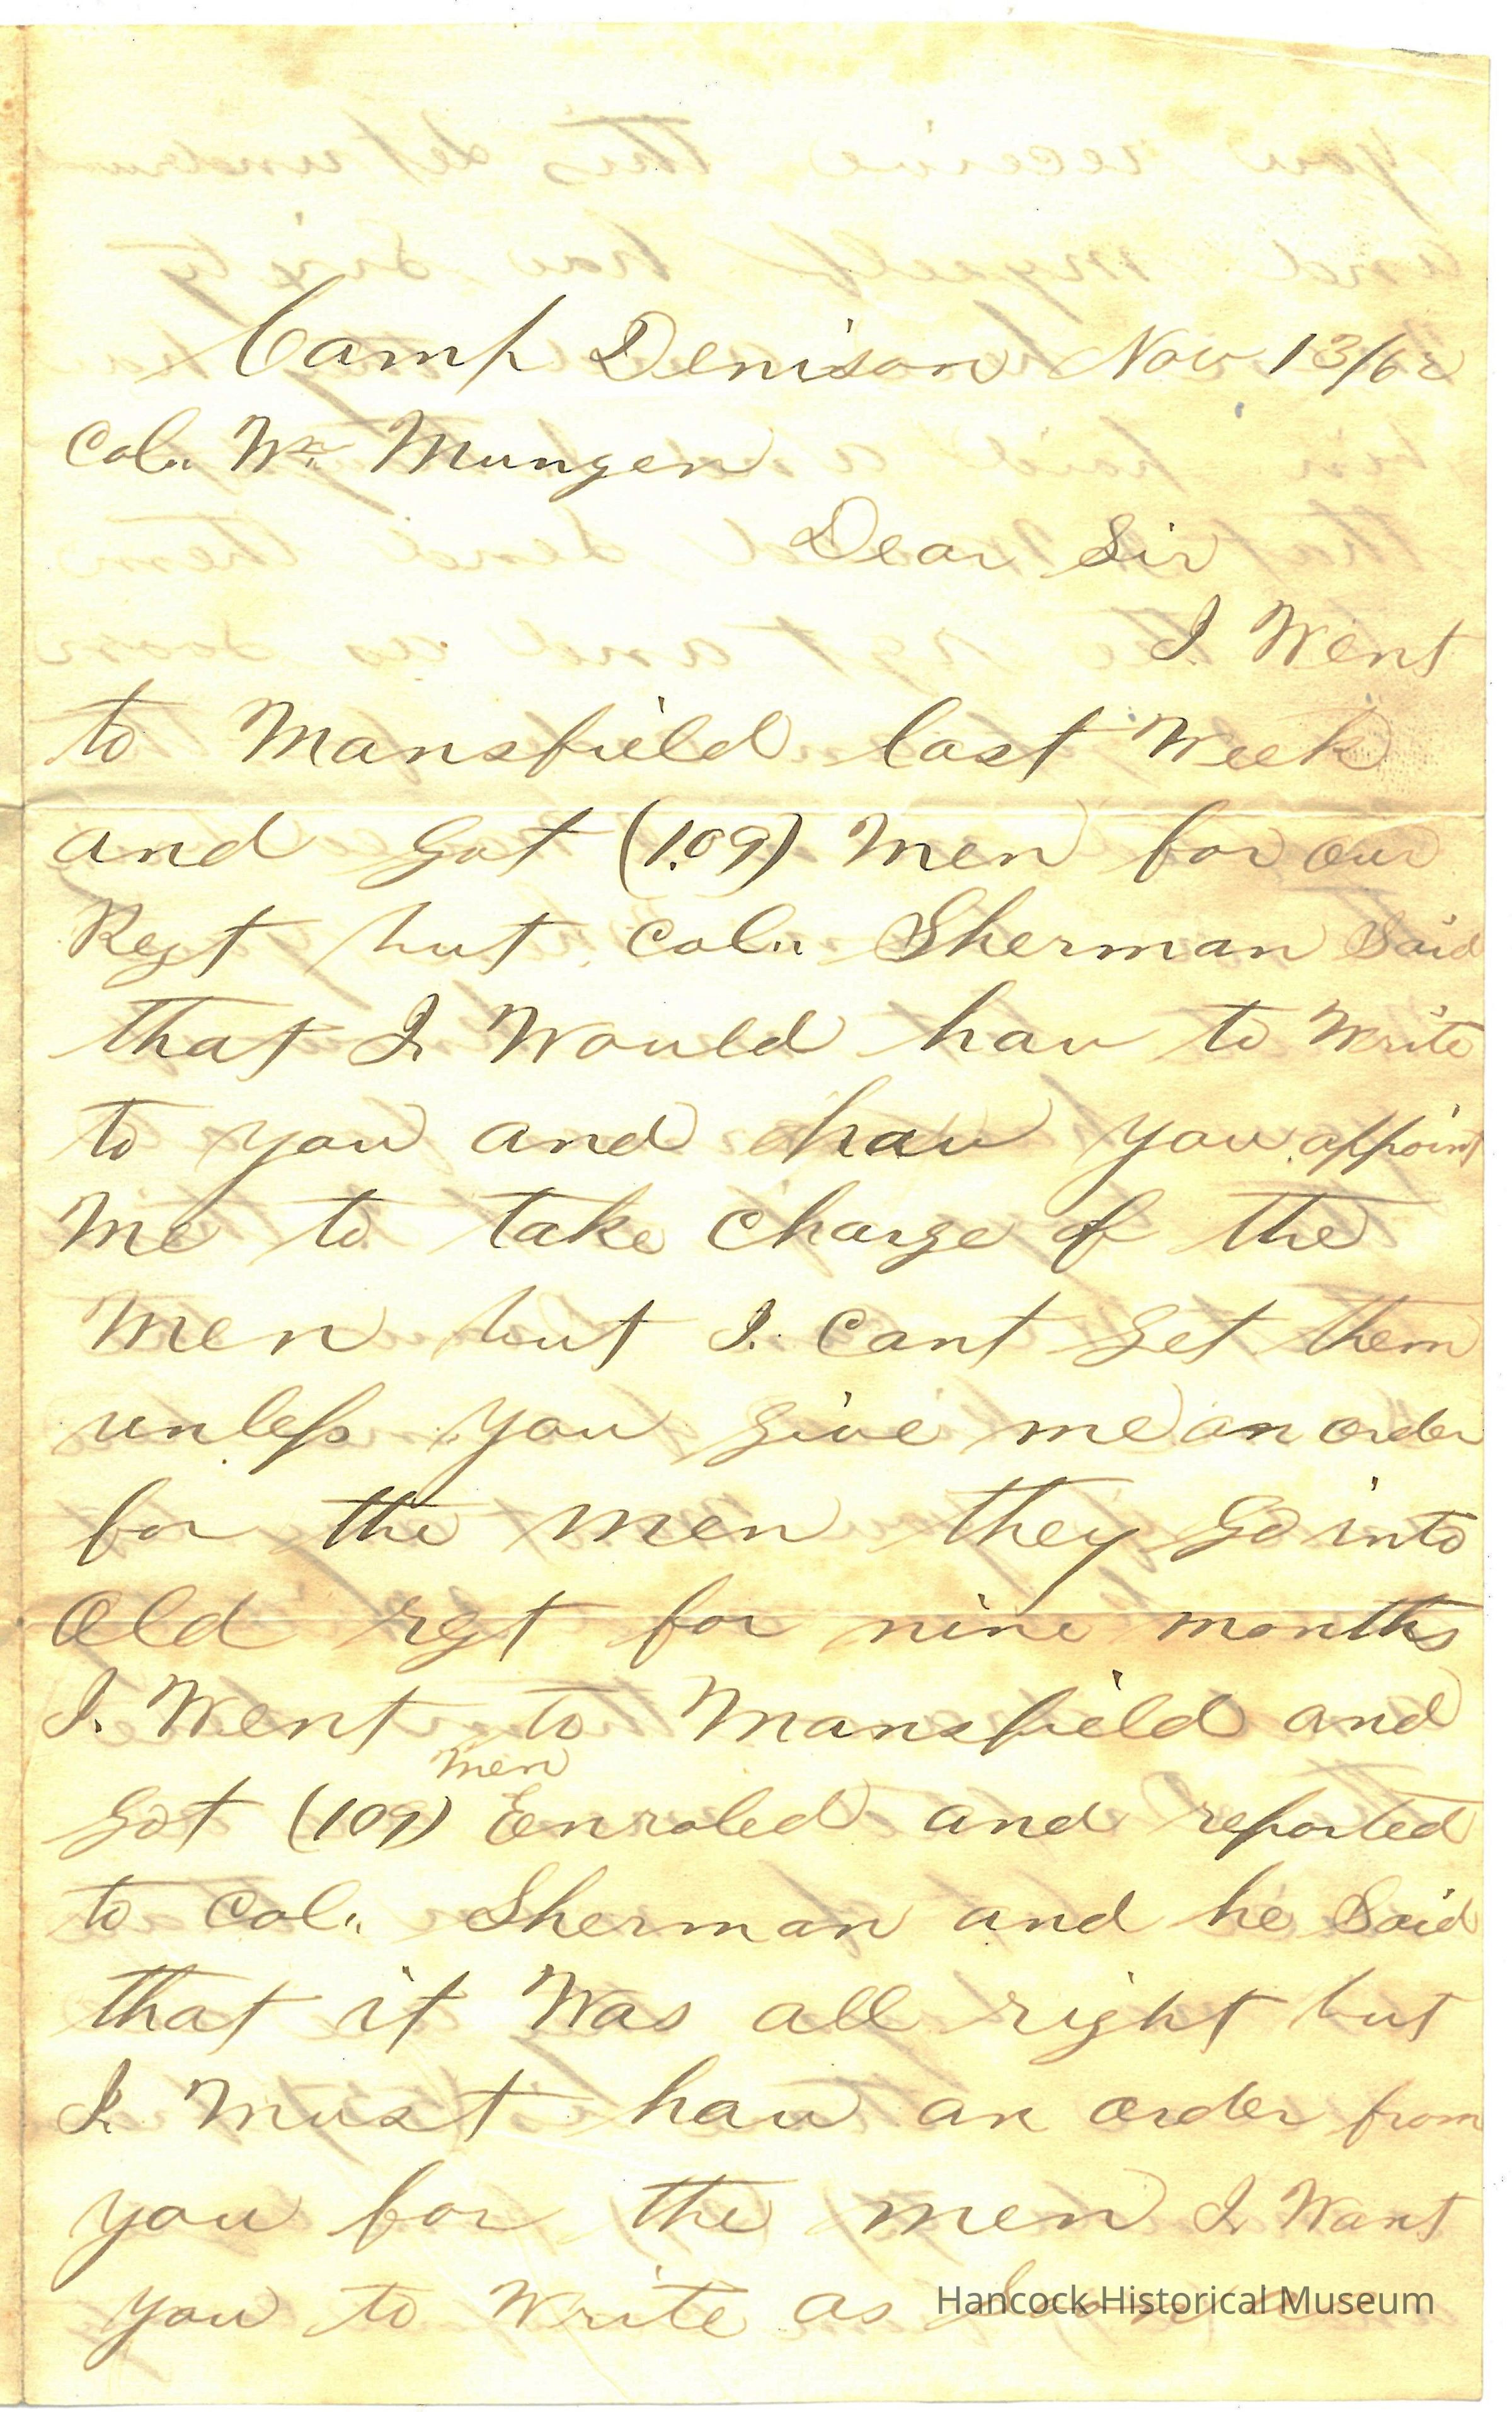 Camp Denison Nov 13/62
Col.. Wm Mungen
Dear Sir
I Went
to Mansfield last Week
and got (109) Men for our
Regt but Col.. Sherman Said
that I Would hav to Write
to you and hav you appoint
Me to take Charge of the
Men but I Cant get them
unless you give me an order
for the men they go into
Old rgt for nine months
I Went to Mansfield and
men
got (109) Enroled and reported
to Col.. Sherman and he Said
that it Was all right but
I Must hav an order from
you for the men I Want
you to Write as
Hancock Historical Museum